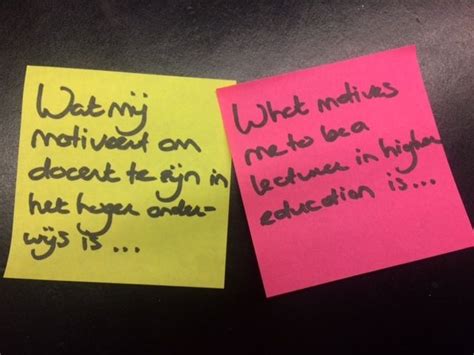 Wat mij
motiveert om
docent te zijn in
het hoger onder-
wijs is ...
What motives
me to be a
lecturer in higher
education is ...